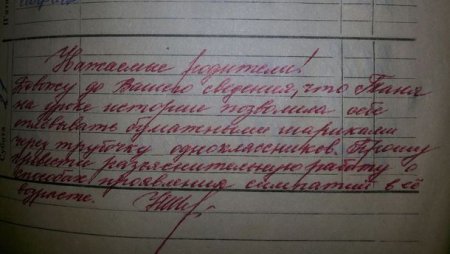 Уважаемые родители!
Довожу до Вашего сведения, что Таня
на уроке истории позволила себе
плевывать бумажными шариками
через трубочку одноклассников. Прошу
провести разъяснительную работу о
способах проявления симпатий в её
возрасте.
Суббота